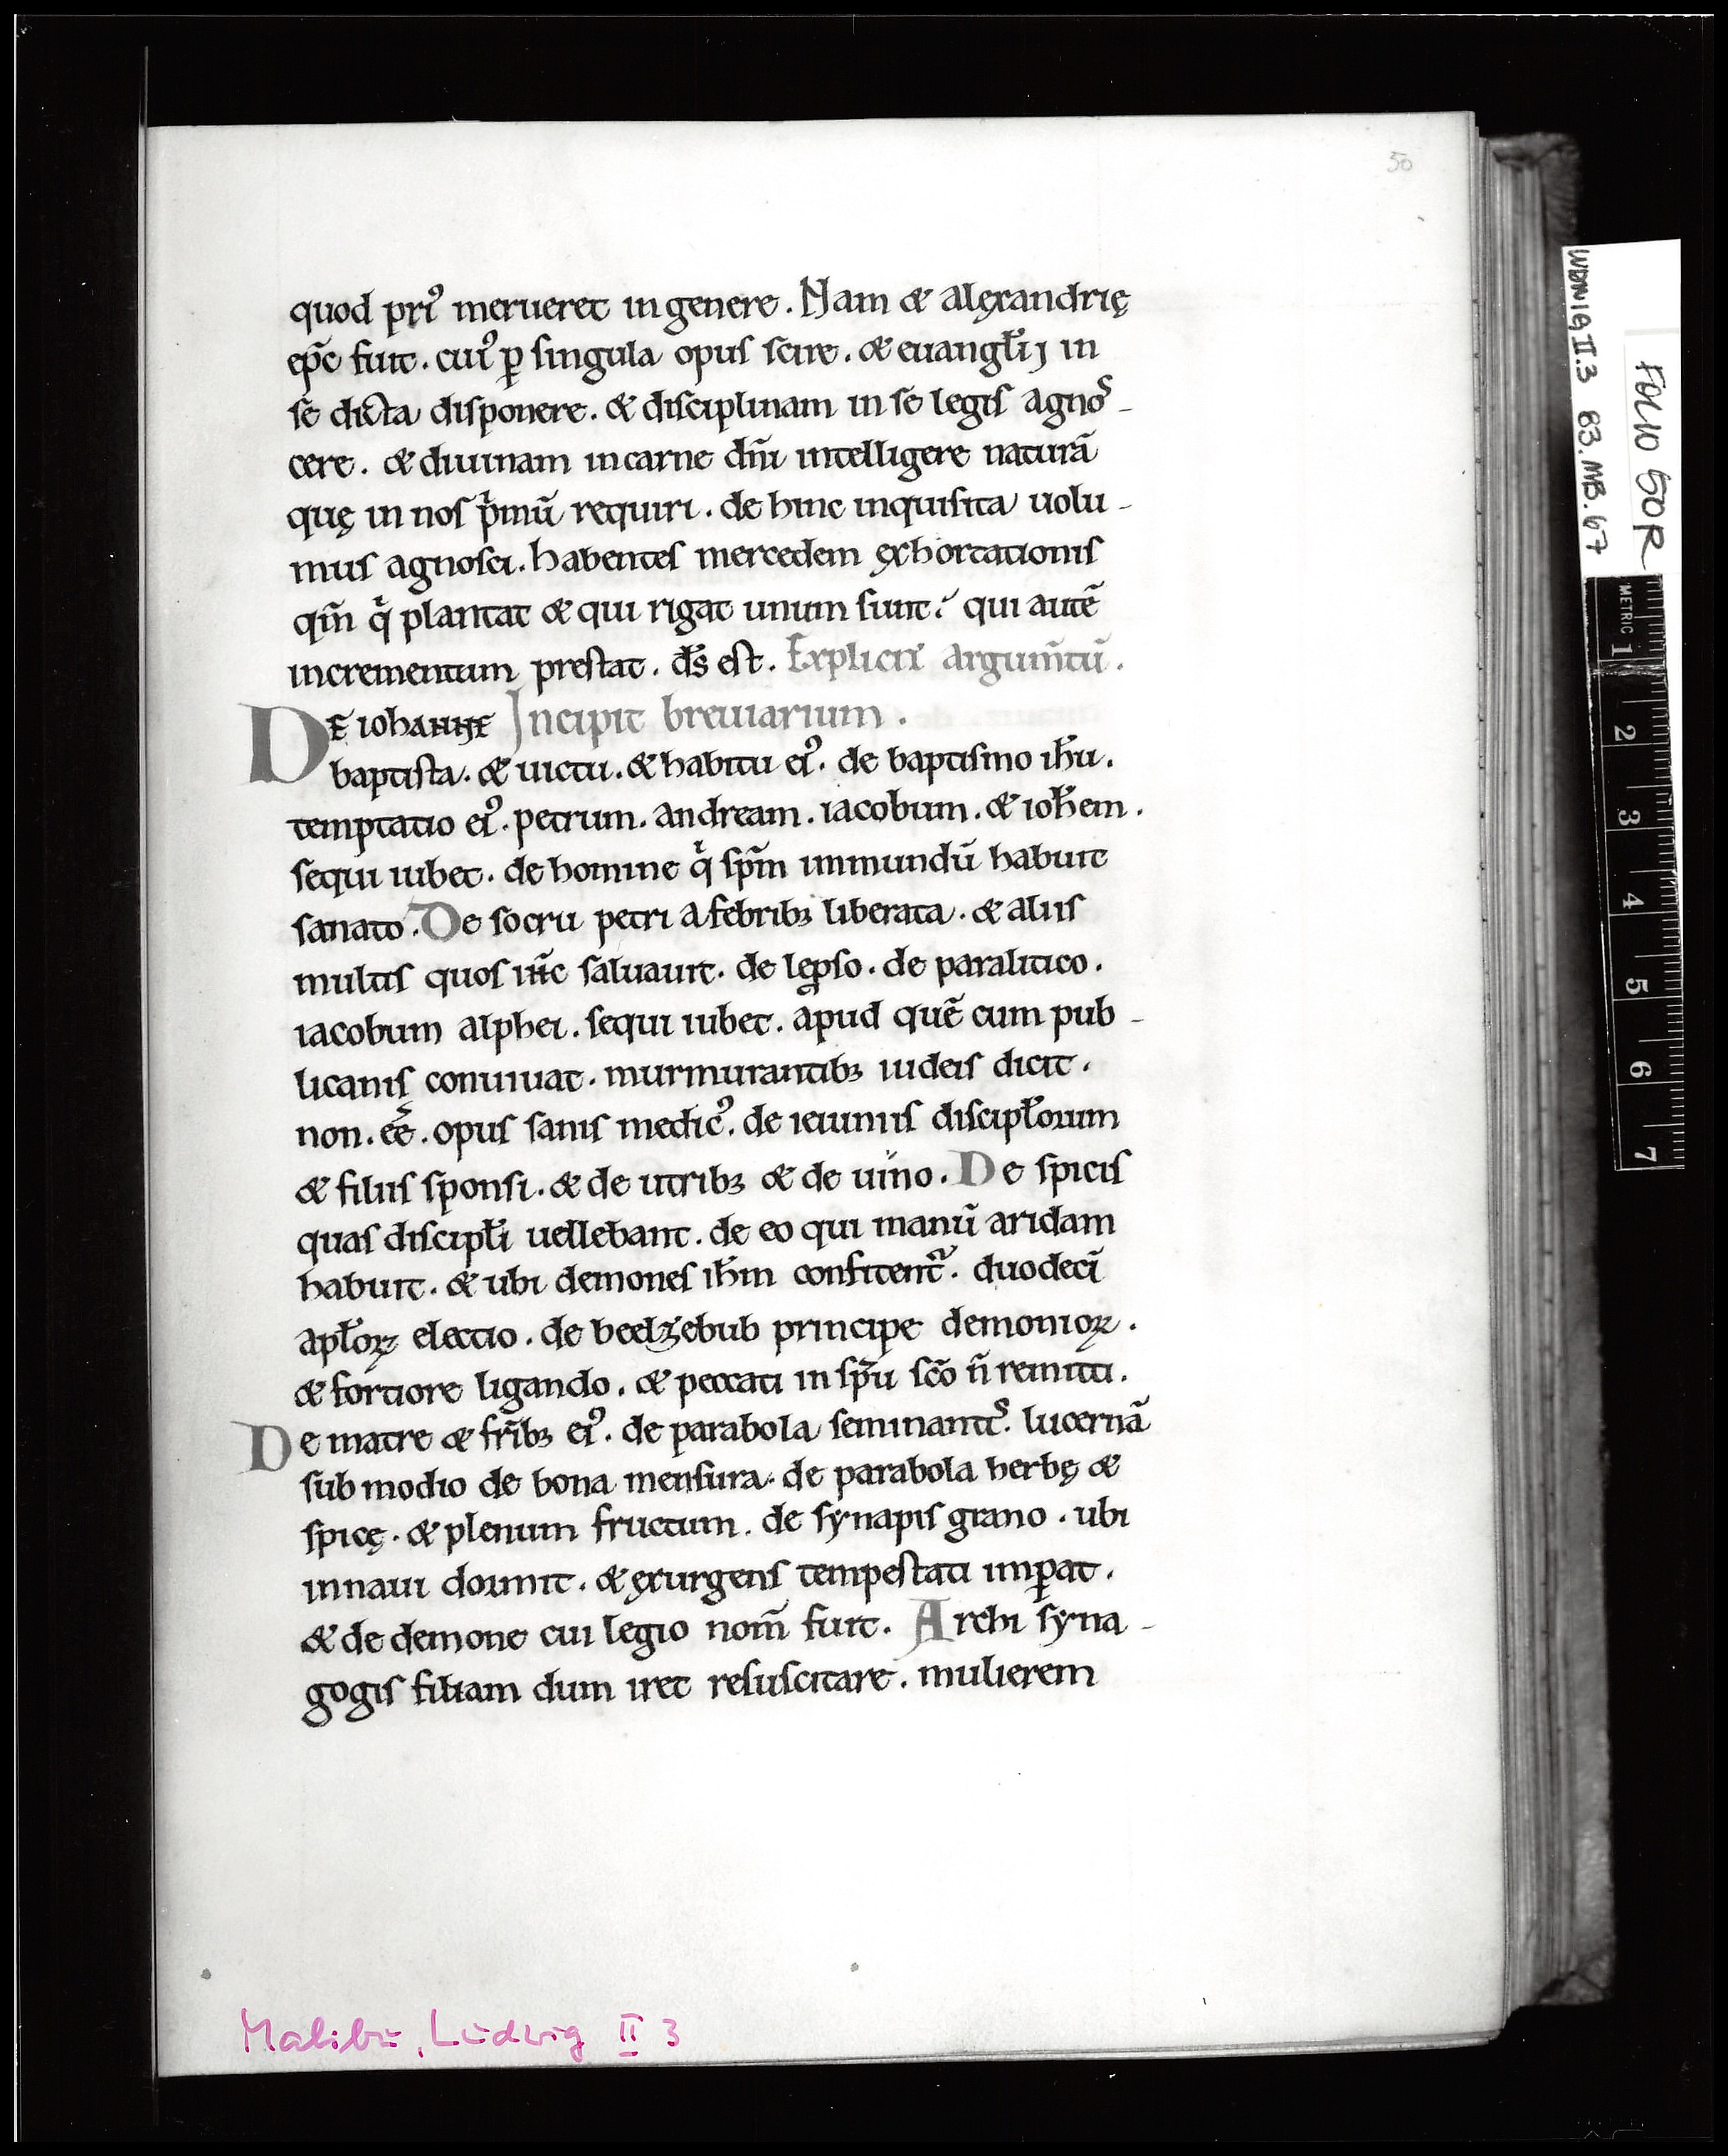 50
quod pri᾽ merueret in genere. Nam & alęxandrię
ep̄c fuit. cui᾽ ꝑ singula opus scire. & euangł̄ij in
se dicta disponere. & disciplinam in se legis agnoˢ-
cere. & diuinam in carne dn̄i intelligere naturā
quę in nos pͥmū requiri. de hinc inquisita uolu-
mus agnosci. habentes mercedem ęxhortationis
qm̄ qͥ plantat & qui rigat unum sunt; qui autē
incrementum prestat. ds̄ est. Explicit argum̄tū.
DE iohanne Incipit breuiarium.
baptista. & uictu. & habitu ei᾽. de baptismo ih̄u.
temptatio ei᾽. petrum. andream. iacobum. & ioh̄em.
sequi iubet. de homine qͥ sp̄m inmundū habuit
sanato. De socru petri a febribꝫ liberata. & aliis
multis quos in̄c saluauit. de lepso. de paralitico.
iacobum alphei. sequi iubet. apud quē cum pub-
licanis conuiuat. murmurantibꝫ iudeis dicit.
non. eē. opus sanis medic᾽. de ieiuniis discipłorum
& filiis sponsi. & de utribꝫ & de uino. De spicis
quas discipłi uellebant. de eo qui manū aridam
habuit. & ubi demones ih̄m confitent᷑. duodecī
apłoꝝ electio. de beelzebub principe demonioꝝ.
& fortiore ligando. & peccati in sp̄u sc̄o n̄ remitti.
De matre & fr̄ibꝫ ei᾽. de parabola seminantˢ. lucernā
sub modio de bona mensura. de parabola herbę &
spicę. & plenum fructum. de synapis grano. ubi
in naui dormit. & ęxurgens tempestati imꝑat.
& de demone cui legio nom̄ fuit. Archi syna-
gogis filiam dum iret resuscitare. mulierem
Malibu, Ludwig II 3
FOLIO 50R
LUDWIG II.3 83.MB.67
METRIC 1
2
3
4
5
6
7